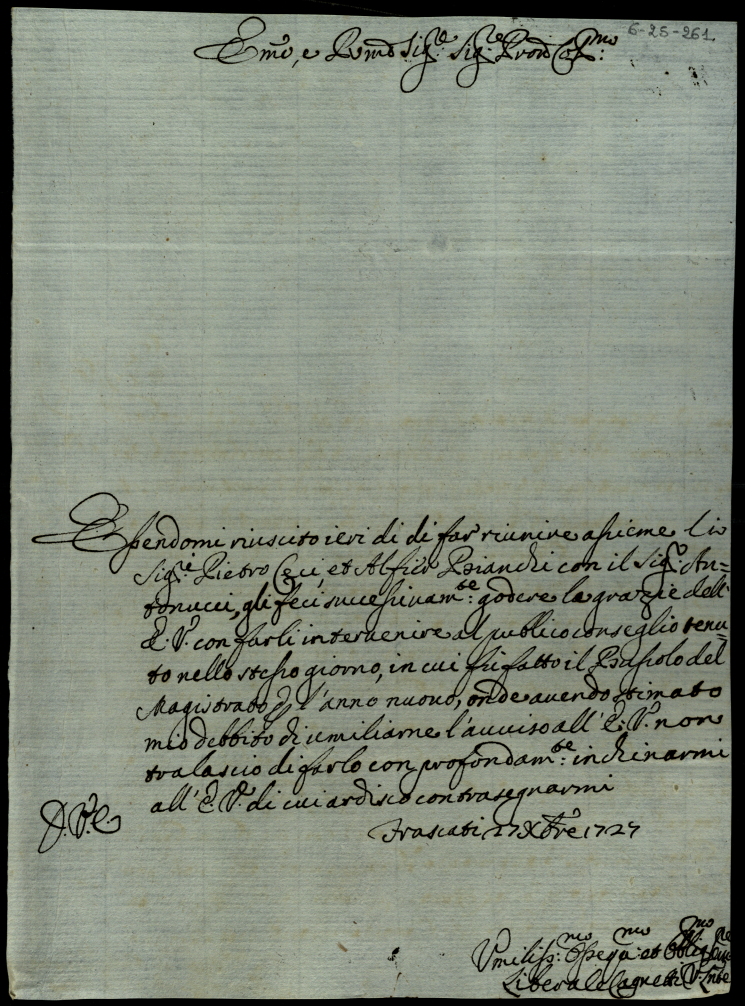 6-25-261
Emo, e Rmo Sig.re Sig.re Pron Col.mo
Essendomi riuscito ieri di di far riunire assieme li
Sig.ri Pietro Ceci, et Alfier Bianchi con il Sig.r An=
tonucci, gli feci successivam.te godere la grazie dell'
E. V.ra con farli intervenire al publico conseglio tenu=
to nello stesso giorno, in cui fu fatto il Bussolo del
Magistrato p l'anno nuovo, onde avendo stimato
mio debbito di umiliarne l'avviso all' E. V.ra non
tralascio di farlo con profondam.te inchinarmi
all' E. V.ra di cui ardisco contrasegnarmi
D. V. E.
Frascati 27 Xbre 1727
Umiliss.mo Osseq.mo et Obblig.mo Ser.re
Liberale Cagnetti V. Lnte